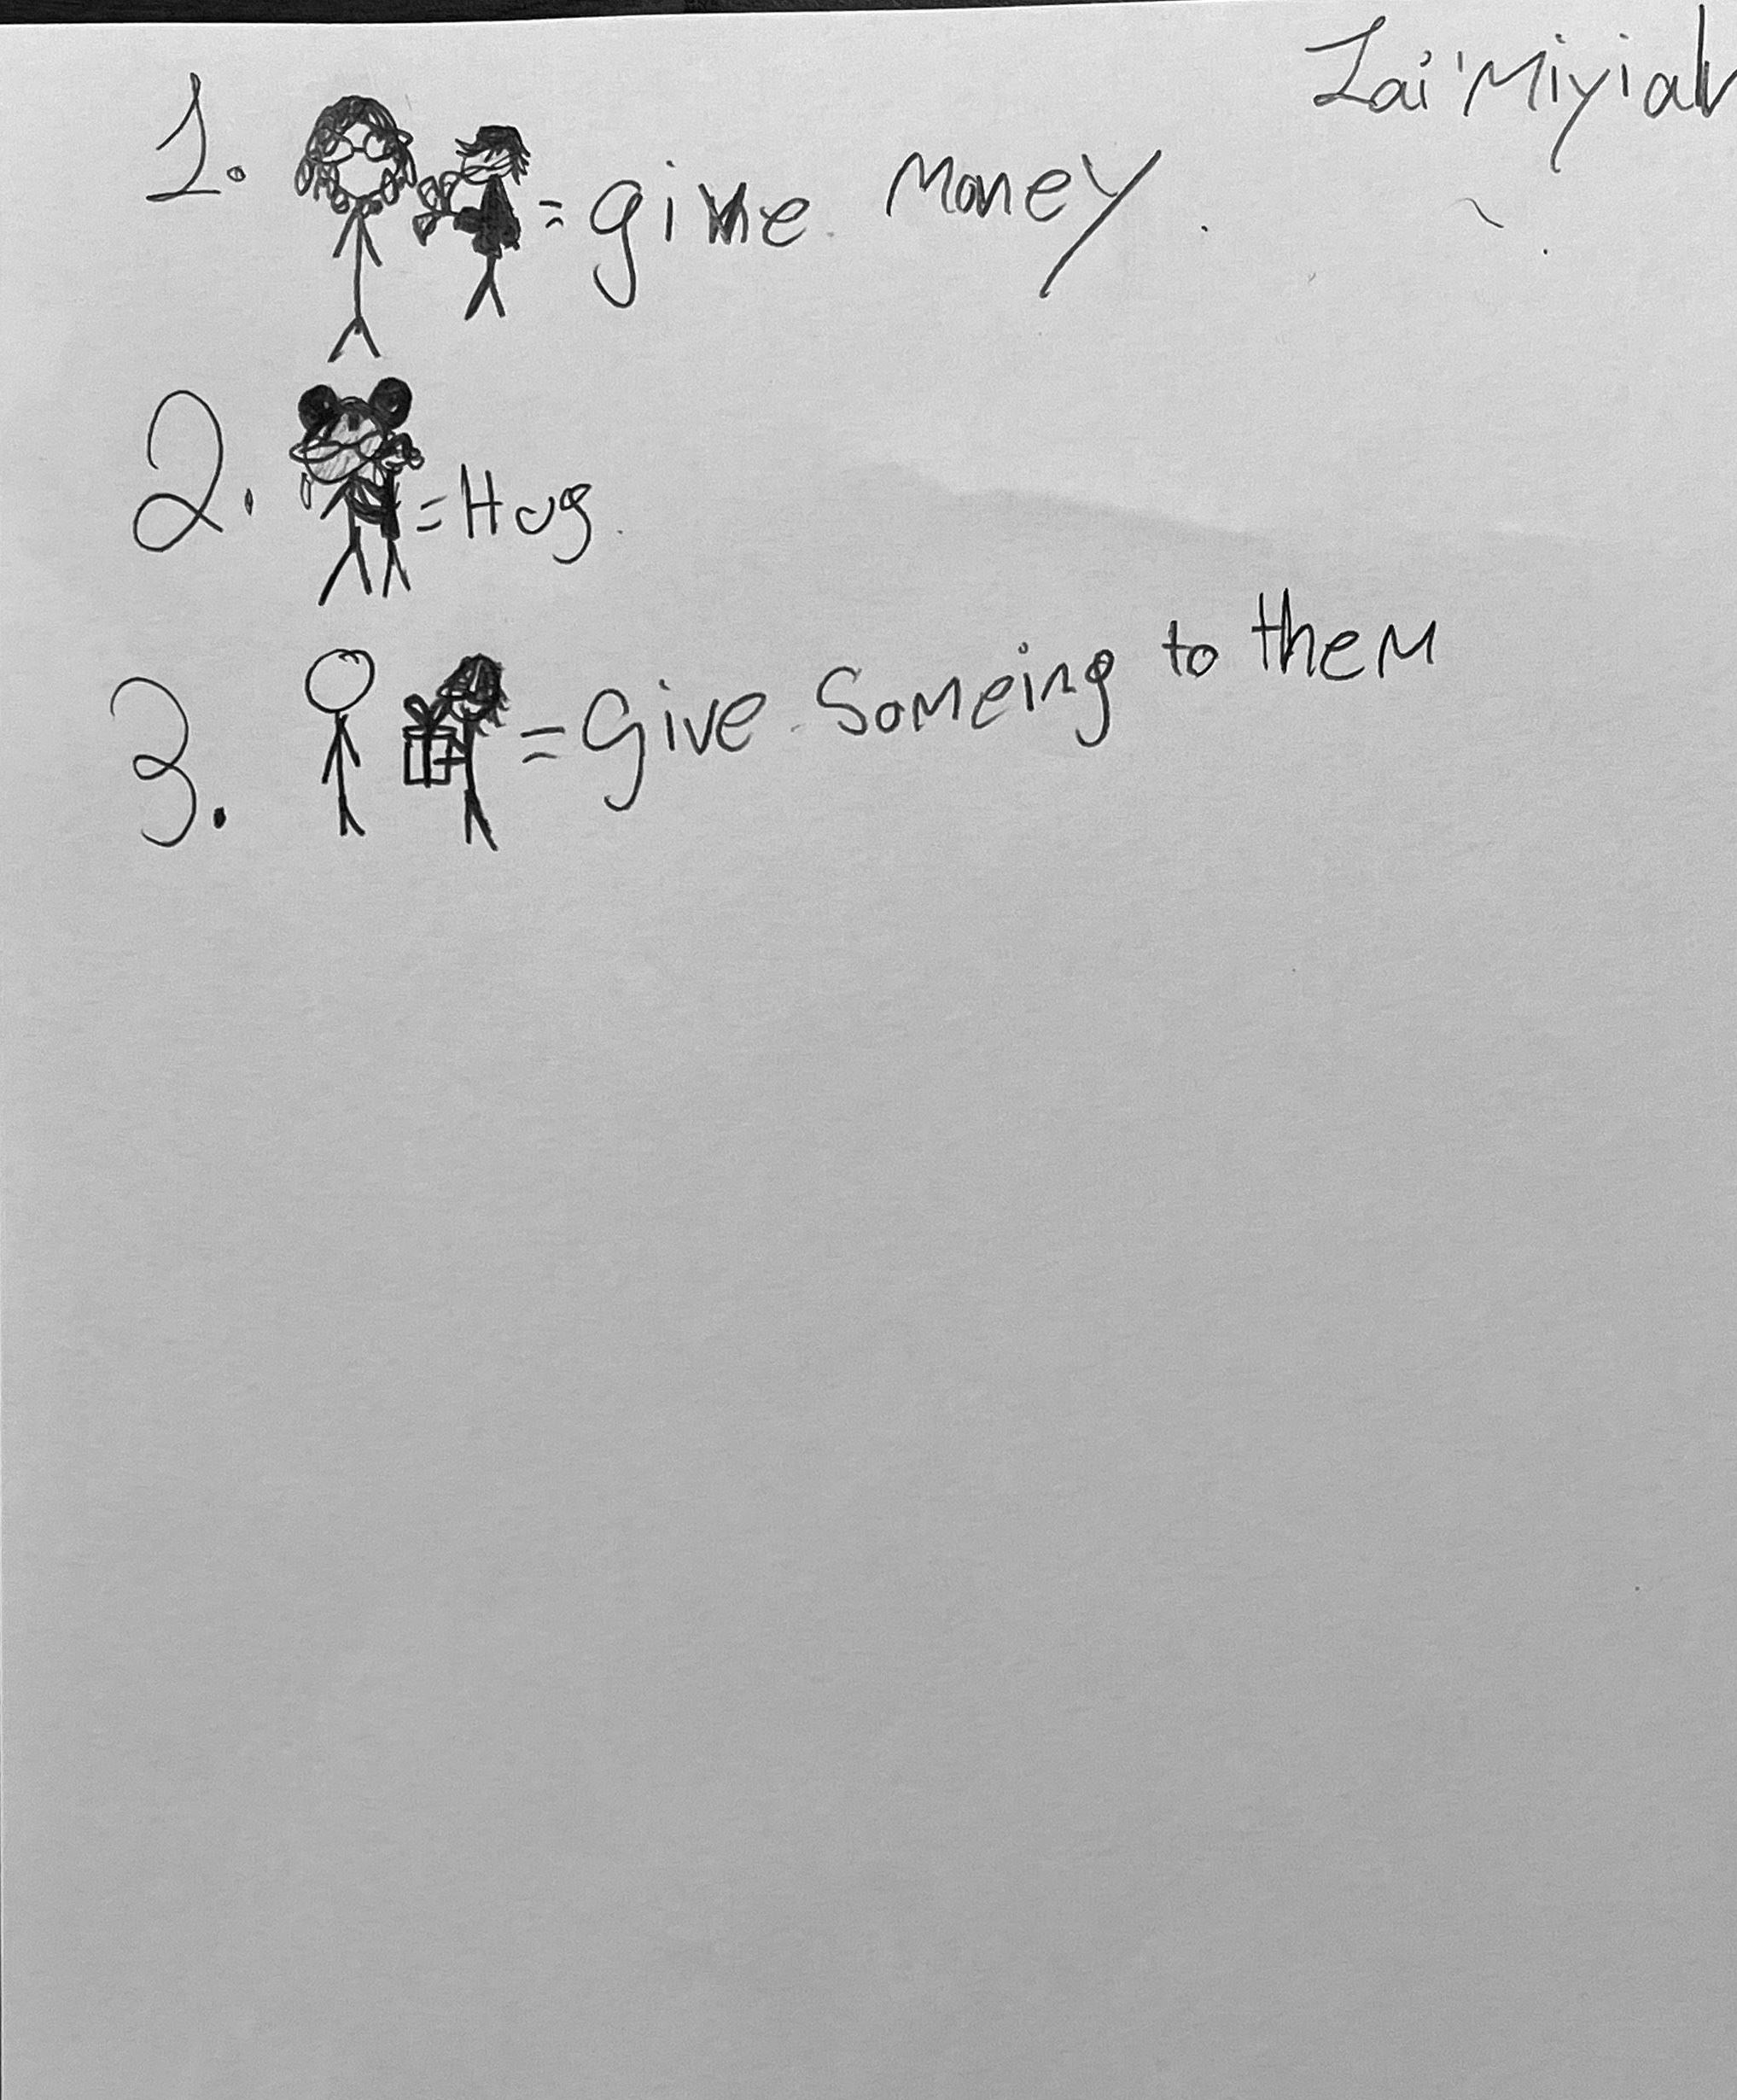 Zai'Miyiah
1. = give money.
2. = Hug.
3. = Give Someing to them